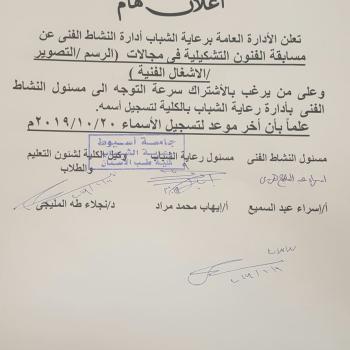 اعلان هام
تعلن الأدارة العامة برعاية الشباب أدارة النشاط الفنى عن
مسابقة الفنون التشكيلية فى مجالات (الرسم /التصوير
/الأشغال الفنية )
وعلى من يرغب بالأشتراك سرعة التوجه الى مسئول النشاط
الفنى بأدارة رعاية الشباب بالكلية لتسجيل أسمه.
علماً بأن أخر موعد لتسجيل الأسماء ٢٠١٩/١٠/٢٠م
جامعة أسيوط
مسئول النشاط الفنى مسئول رعاية الشباب وكيل الكلية لشئون التعليم
والطلاب
أ/إسراء عبد السميع أ/إيهاب محمد مراد د/نجلاء طه المليجى